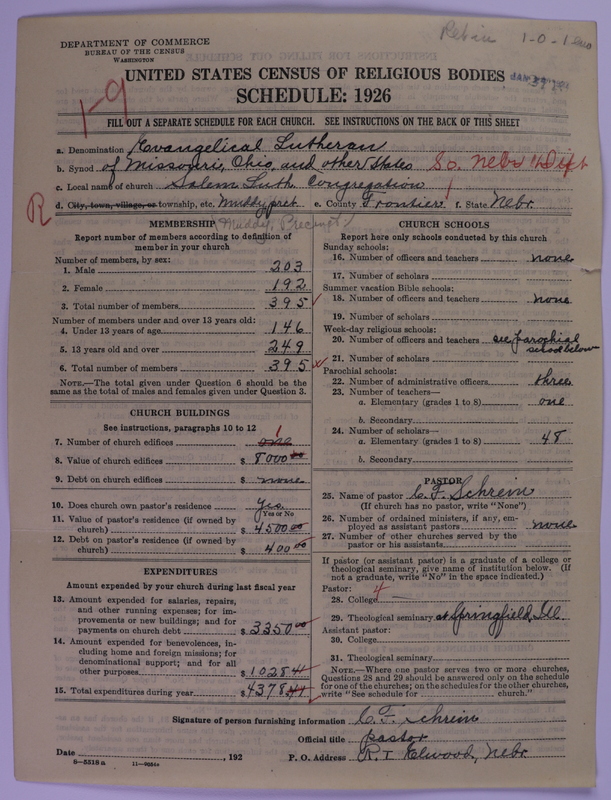 Retain 1-0-1
DEPARTMENT OF COMMERCE
BUREAU OF THE CENSUS
WASHINGTON
UNITED STATES CENSUS OF RELIGIOUS BODIES
SCHEDULE: 1926
1-9
FILL OUT A SEPARATE SCHEDULE FOR EACH CHURCH. SEE INSTRUCTIONS ON THE BACK OF THIS SHEET
a. Denomination Evangelical Lutheran
b. Synod of Missouri, Ohio, and other States So. Nebr. Dist
c. Local name of church Salem Luth Congregation
R d. City, town, village, or township, etc. Muddy prect e. County Frontier f. State Nebr.
(Muddy Precinct)
MEMBERSHIP
Report number of members according to definition of
member in your church
Number of members, by sex:
1. Male 203
2. Female 192
3. Total number of members 395
Number of members under and over 13 years old:
4. Under 13 years of age 146
5. 13 years old and over 249
6. Total number of members 395
NOTE.—The total given under Question 6 should be the
same as the total of males and females given under Question 3.
CHURCH BUILDINGS
See instructions, paragraphs 10 to 12
7. Number of church edifices one 1
8. Value of church edifices $ 8000 00
9. Debt on church edifices $ none
10. Does church own pastor's residence Yes
Yes or No
11. Value of pastor's residence (if owned by
church) $ 4500 00
12. Debt on pastor's residence (if owned by
church) $ 400 00
EXPENDITURES
Amount expended by your church during last fiscal year
13. Amount expended for salaries, repairs,
and other running expenses; for im-
provements or new buildings; and for
payments on church debt $ 3350 00
14. Amount expended for benevolences, in-
cluding home and foreign missions; for
denominational support; and for all
other purposes $ 1028 41
15. Total expenditures during year $ 4378 41
CHURCH SCHOOLS
Report here only schools conducted by this church
Sunday schools:
16. Number of officers and teachers none
17. Number of scholars
Summer vacation Bible schools:
18. Number of officers and teachers none
19. Number of scholars
Week-day religious schools:
20. Number of officers and teachers see parochial
school below
21. Number of scholars
Parochial schools:
22. Number of administrative officers three
23. Number of teachers—
a. Elementary (grades 1 to 8) one
b. Secondary
24. Number of scholars—
a. Elementary (grades 1 to 8) 48
b. Secondary
PASTOR
25. Name of pastor C. F. Schrein
(If church has no pastor, write "None")
26. Number of ordained ministers, if any, em-
ployed as assistant pastors none
27. Number of other churches served by the
pastor or his assistants
If pastor (or assistant pastor) is a graduate of a college or
theological seminary, give name of institution below. (If
not a graduate, write "No" in the space indicated.)
Pastor: 4
28. College
29. Theological seminary at Springfield, Ill
Assistant pastor:
30. College
31. Theological seminary
NOTE.—Where one pastor serves two or more churches,
Questions 28 and 29 should be answered only on the schedule
for one of the churches; on the schedules for the other churches,
write "See schedule for church."
Signature of person furnishing information C. F. Schrein
Official title pastor
Date , 192 P. O. Address R. 1 Elwood, Nebr.
8—5518a 11—9064a